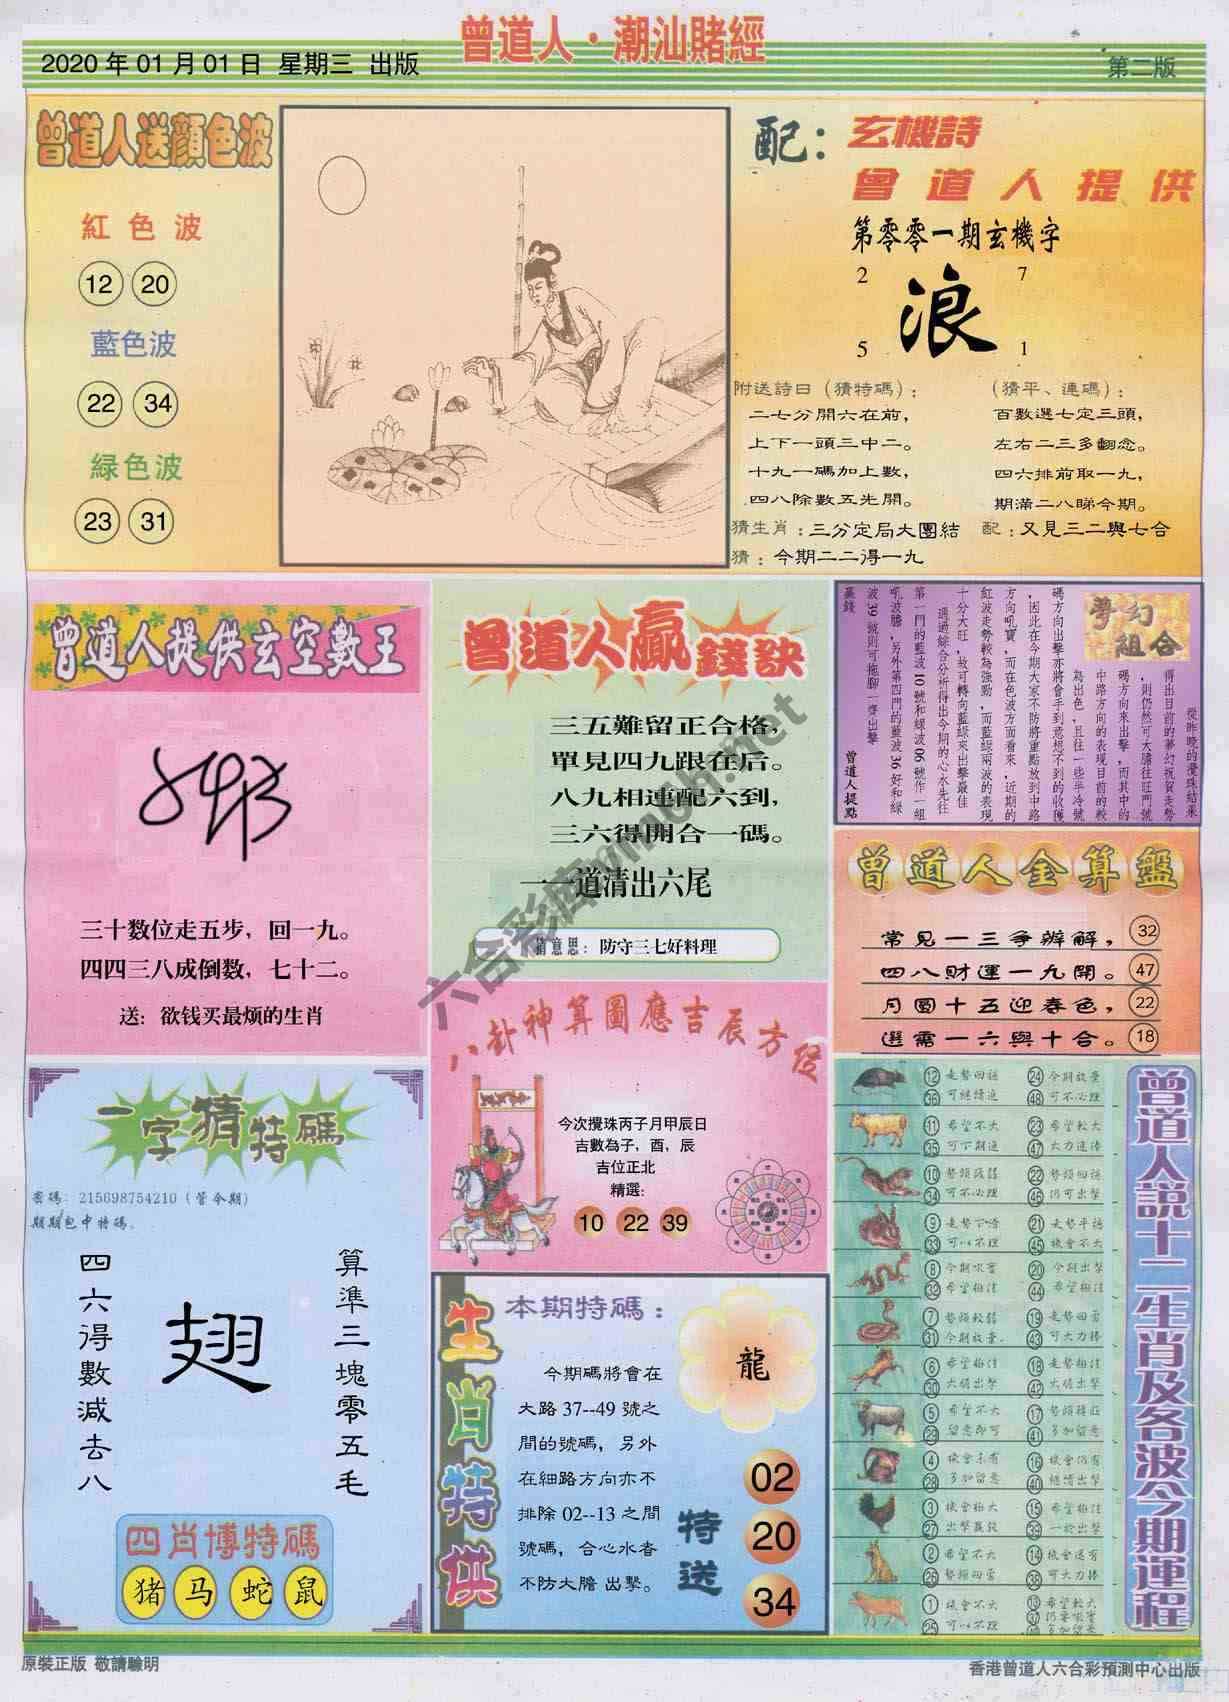 曾道人·潮汕賭經
2020 年 01 月 01 日 星期三 出版
第二版
曾道人送顔色波
紅色波
12 20
藍色波
22 34
緑色波
23 31
配：玄機詩
曾道人提供
第零零一期玄機字
2 7
浪
5 1
附送詩曰（猜特碼）：
二七分開六在前，
上下一頭三中二。
十九一碼加上數，
四八除數五先開。
（猜平、連碼）：
百數選七定三頭，
左右二三多翻念。
四六排前取一九，
期滿二八睇今期。
猜生肖：三分定局大團結 配：又見三二與七合
猜：今期二二得一九
曾道人提供玄空數王
三十数位走五步，回一九。
四四三八成倒数，七十二。
送：欲钱买最烦的生肖
曾道人贏錢訣
三五難留正合格，
單見四九跟在后。
八九相連配六到，
三六得開合一碼。
一一道清出六尾
猜意思：防守三七好料理
夢幻組合
從昨晚的攪珠結果
得出目前的夢幻祝賀走勢
，則仍然可大膽往旺門號
碼方向來出擊，而其中的
中路方向的表現目前的較
為出色，且往一些半冷號
碼方向出擊亦將會手到意想不到的收穫
，因此在今期大家不防將重點放到中路
方向吼寶，而在色波方面看來，近期的
紅波走勢較為強勁，而藍綠兩波的表現
十分大旺，故可轉向藍綠來出擊最佳
通過綜合分析得出今期的心水先往
第一門的藍波 10 號和綠波 06 號作一組
吼波膽，另外第四門的藍波 36 好和綠
波 39 號則可拖腳一齊出擊
贏錢
曾道人提點
曾道人金算盤
常見一三爭辦解， 32
四八財運一九開。 47
月圓十五迎春色， 22
選需一六與十合。 18
八卦神算圖應吉辰方位
今次攪珠丙子月甲辰日
吉數為子，酉，辰
吉位正北
精選：
10 22 39
一字猜特碼
密碼：215698754210（管今期）
期期包中特碼。
算準三塊零五毛
翅
四六得數減去八
四肖博特碼
猪 马 蛇 鼠
生肖特供
本期特碼：
龍
今期碼將會在
大路 37--49 號之
間的號碼，另外
在細路方向亦不
排除 02--13 之間
號碼，合心水者
不防大膽 出擊。
特送
02
20
34
曾道人說十二生肖及各波今期運程
12 走勢回穩 24 今期放量
36 可繼續追 48 可不必理
11 希望不大 23 希望較大
35 可下期追 47 大力追捧
10 勢頭疲弱 22 勢頭回穩
34 可不必理 46 仍可出擊
9 走勢下滑 21 走勢平穩
33 可以不理 45 機會不大
8 今期吸寶 20 今期出擊
32 希望極佳 44 希望極佳
7 勢頭較弱 19 走勢回雷
31 今期放量 43 可大力捧
6 希望極佳 18 走勢極佳
30 大碼出擊 42 大碼出擊
5 希望不大 17 勢頭得旺
29 留意即可 41 多加留意
4 機會未有 16 機會仍有
28 多加留意 40 繼續出擊
3 機會極大 15 希望極佳
27 出擊贏錢 39 一於出擊
2 希望不大 14 機會還有
26 勢頭回雷 38 可大力捧
1 機會不大 13 希望較大
25 可以不理 37 仍要吸寶
49 多加出擊
原裝正版 敬請驗明
香港曾道人六合彩預測中心出版